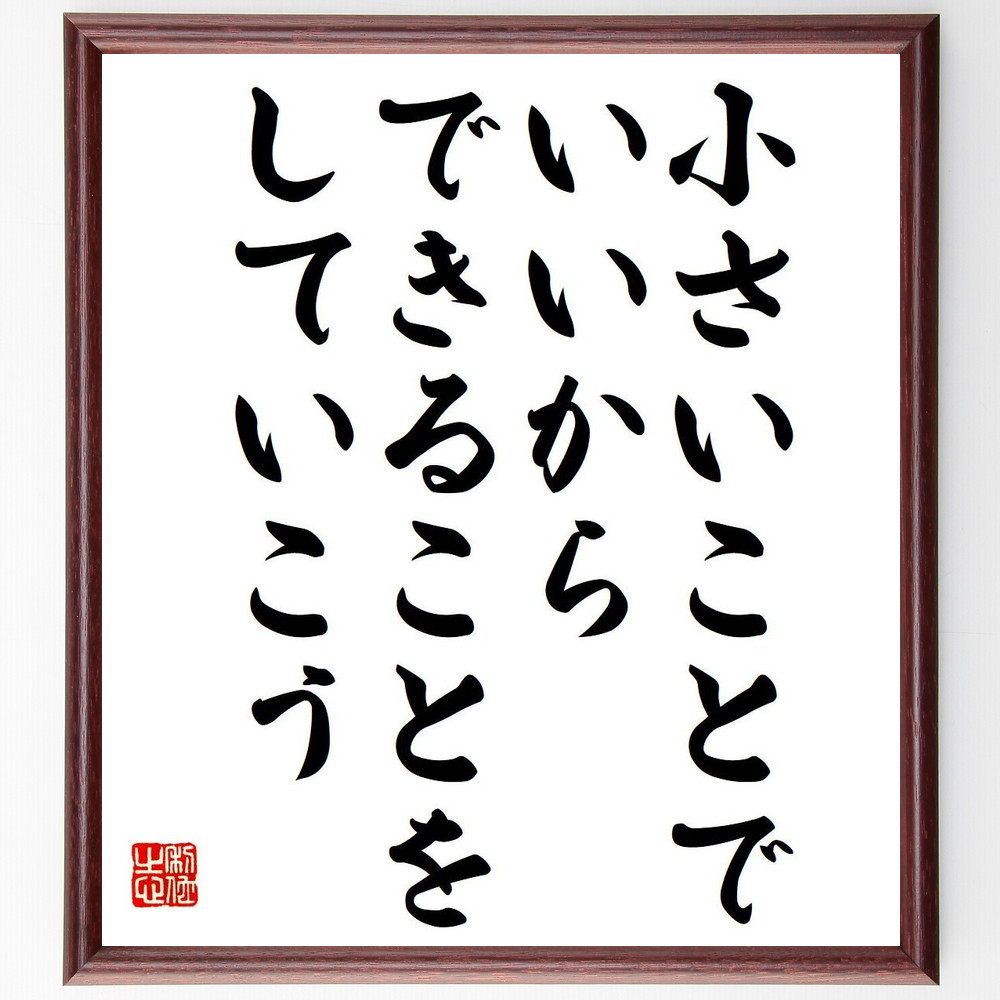 小さいことで
いいから
できることを
していこう